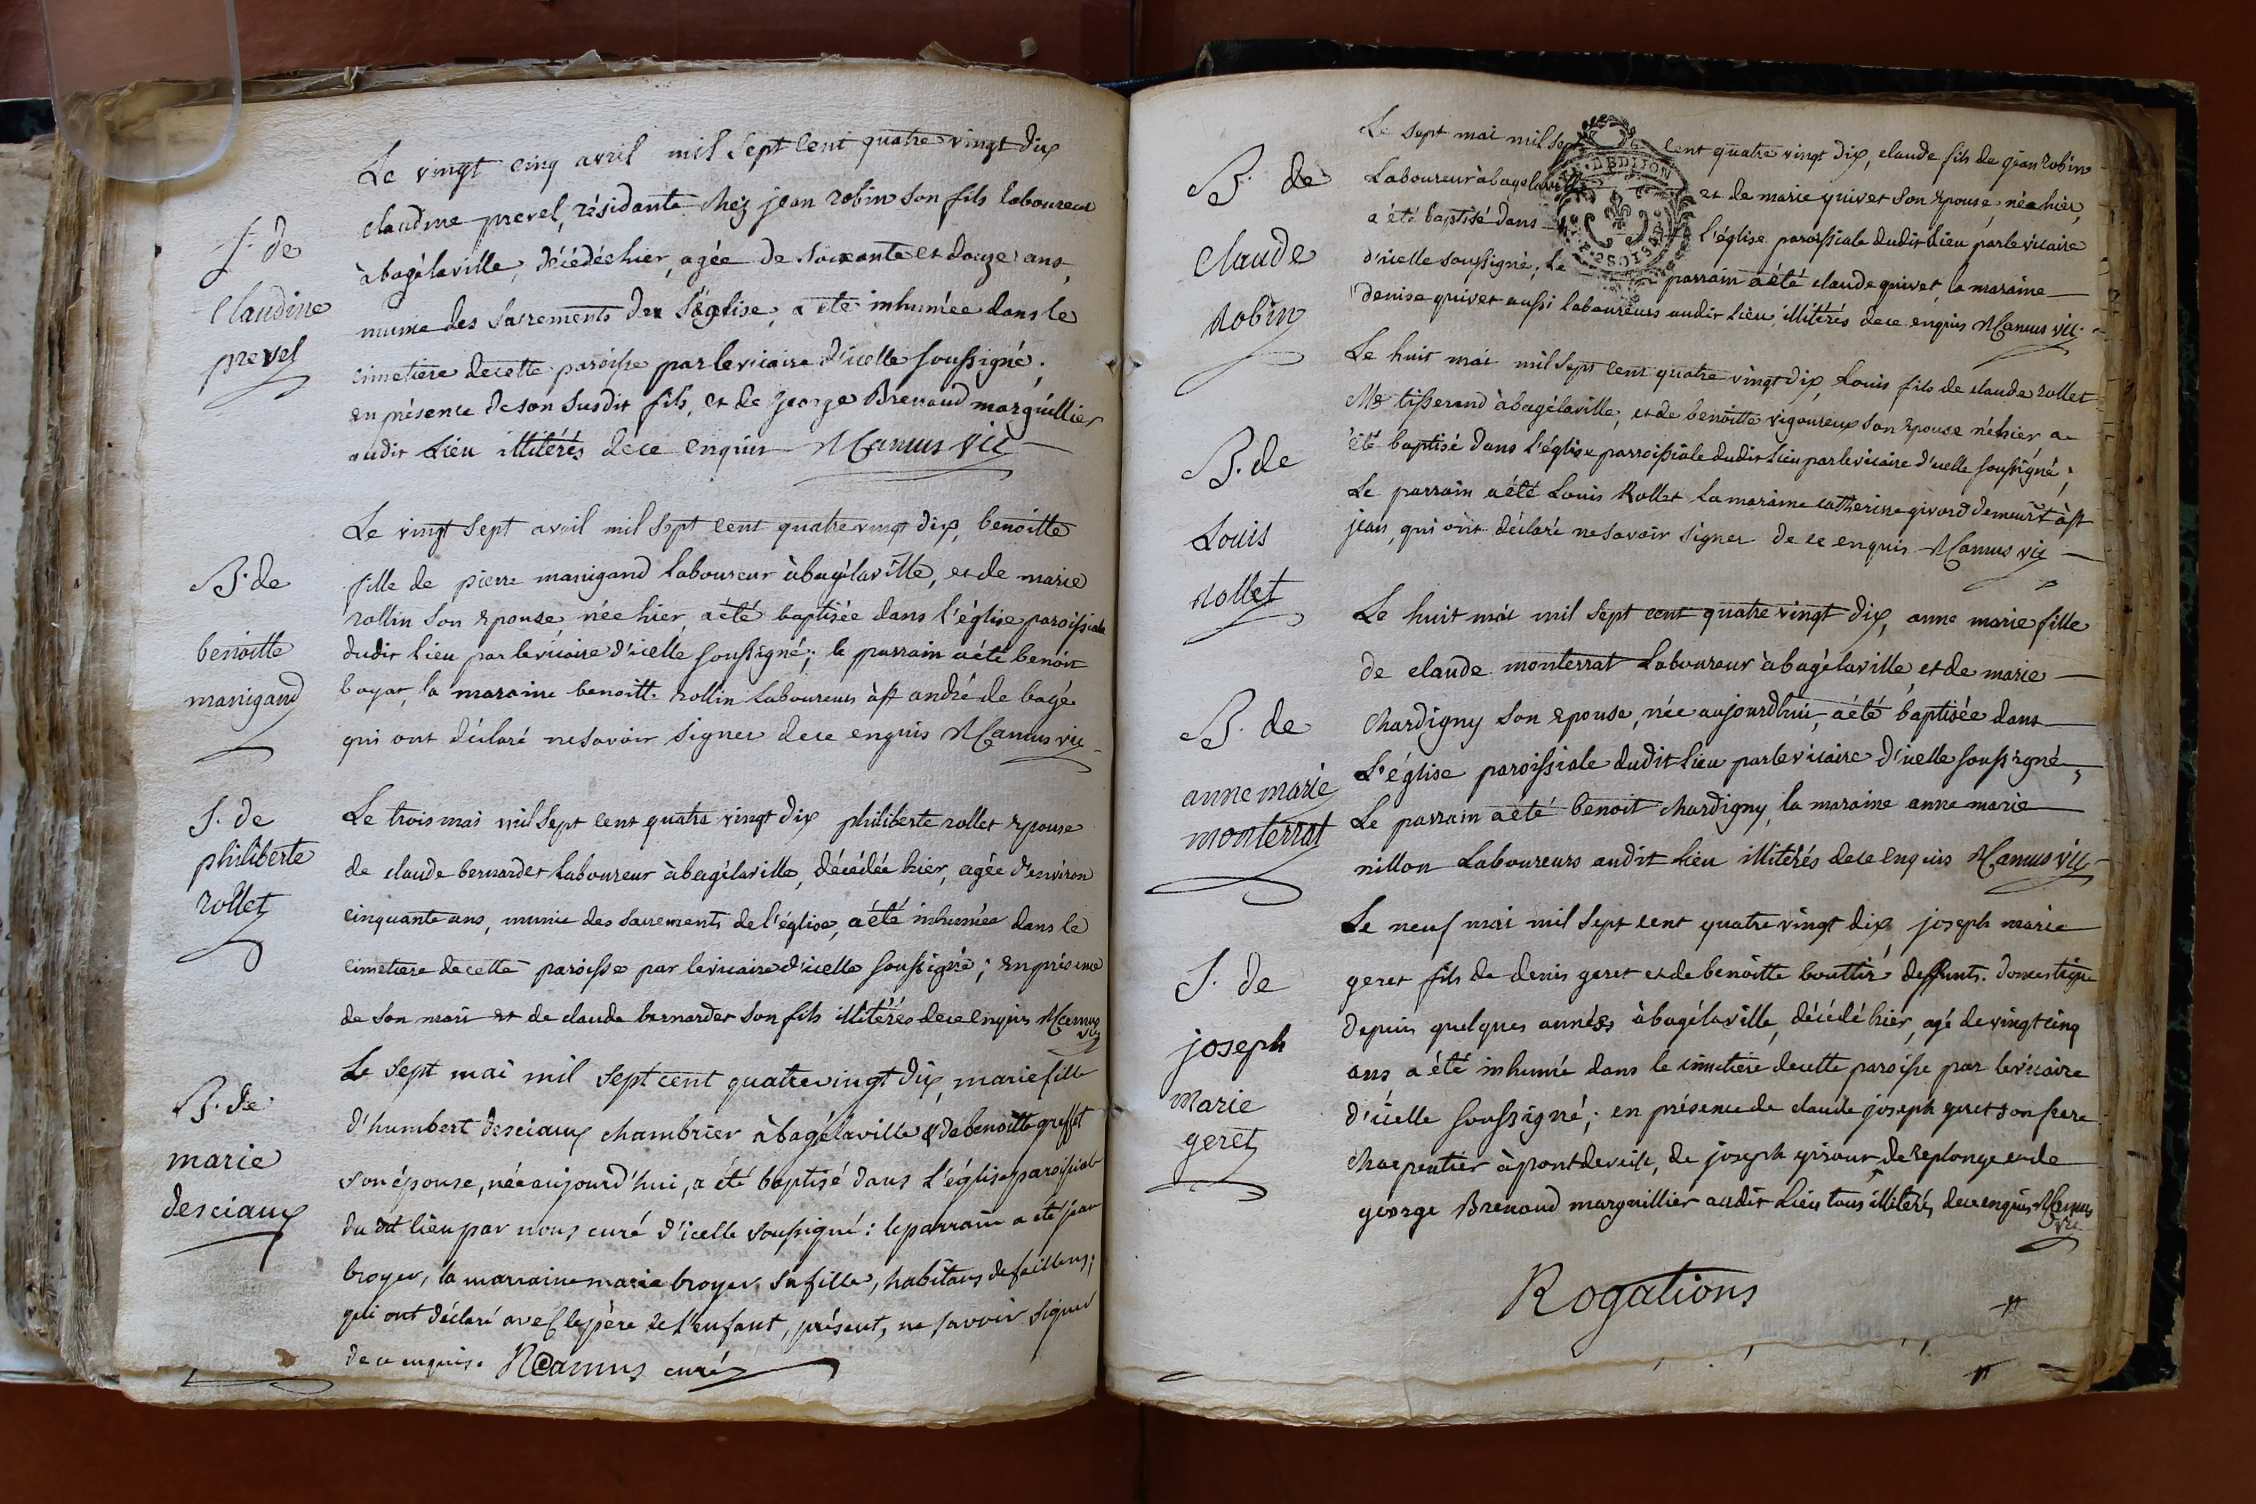 Le vingt cinq avril mil sept cent quatre vingt dix
S. de
claudine prevel, résidante chez jean robin son fils laboureur
à bagélaville, décédée hier, agée de soixante et douze ans,
claudine
munie des sacrements de l'église, a été inhumée dans le
prevel
cimetiere de cette paroisse par le vicaire d'icelle soussigné,
en présence de son susdit fils, et de george Brenaud marguillier
audit lieu illitérés de ce enquis Camus vic
Le vingt sept avril mil sept cent quatre vingt dix, benoitte
B. de
fille de pierre manigand laboureur à bagélaville, et de marie
rollin son epouse, née hier, a été baptisée dans l'église paroissiale
benoitte
dudit lieu par le vicaire d'icelle soussigné; le parrain a été benoit
manigand
boyat, la maraine benoitte rollin laboureurs à st andré de bagé
qui ont déclaré ne savoir signer de ce enquis Camus vic
Le trois mai mil sept cent quatre vingt dix philiberte rollet epouse
S. de
philiberte
rollet
de claude bernardet laboureur à bagélaville, décédée hier, agée d'environ
cinquante ans, munie des sacrements de l'église, a été inhumée dans le
cimetiere de cette paroisse par le vicaire d'icelle soussigné; en présence
de son mari et de claude bernardet son fils illitérés de ce enquis Camus
vic
Le sept mai mil sept cent quatre vingt dix, marie fille
B. de
d'humbert desciaux chambrier à bagélaville & de benoitte greffet
marie
son épouse, née aujourd'hui, a été baptisé dans l'église paroissiale
desciaux
du dit lieu par nous curé d'icelle soussigné: le parrain a été jean
broyer, la marraine marie broyer, sa fille, habitans de feillens;
qui ont déclaré avec le père de l'enfant, présent, ne savoir signer
de ce enquis. Camus curé
Le sept mai mil sept cent quatre vingt dix, claude fils de jean robin
B. de
laboureur à bagélaville et de marie quivet son epouse, née hier,
DE DIJON
a été baptisé dans l'église paroissiale dudit lieu par le vicaire
claude
d'icelle soussigné, Le parrain a été claude quivet, la maraine
robin
denise quivet aussi laboureurs audit lieu, illitérés de ce enquis Camus vic.
Le huit mai mil sept cent quatre vingt dix, Louis fils de claude rollet
Me tisserand à bagélaville, et de benoitte vigoureux son epouse né hier, a
B. de
été baptisé dans l'église parroissiale dudit lieu par le vicaire d'icelle soussigné;
Le parrain a été Louis Rollet la maraine catherine givord demeurt à st
Louis
jean, qui ont déclaré ne savoir signer de ce enquis Camus vic
rollet
Le huit mai mil sept cent quatre vingt dix, anne marie fille
de claude monterrat laboureur à bagélaville et de marie
B. de
chardigny son epouse, née aujourdhui, a été baptisée dans
anne marie
L'église paroissiale dudit lieu par le vicaire d'icelle soussigné,
monterrat
Le parrain a été benoit chardigny, la maraine anne marie
nillon laboureurs audit lieu illitérés de ce enquis Camus vic
Le neuf mai mil sept cent quatre vingt dix joseph marie
S. de
geret fils de denis geret et de benoitte bouttir deffunts. domestique
depuis quelques années à bagélaville, décédé hier, agé de vingt cinq
joseph
ans, a été inhumé dans le cimetiere de cette paroisse par le vicaire
marie
d'icelle soussigné; en présence de claude joseph geret son frere
geret
charpentier à pontdevesle, de joseph giroux de Replonge et de
george Brenaud marguillier audit lieu tous illitérés de ce enquis Camus
vic
Rogations